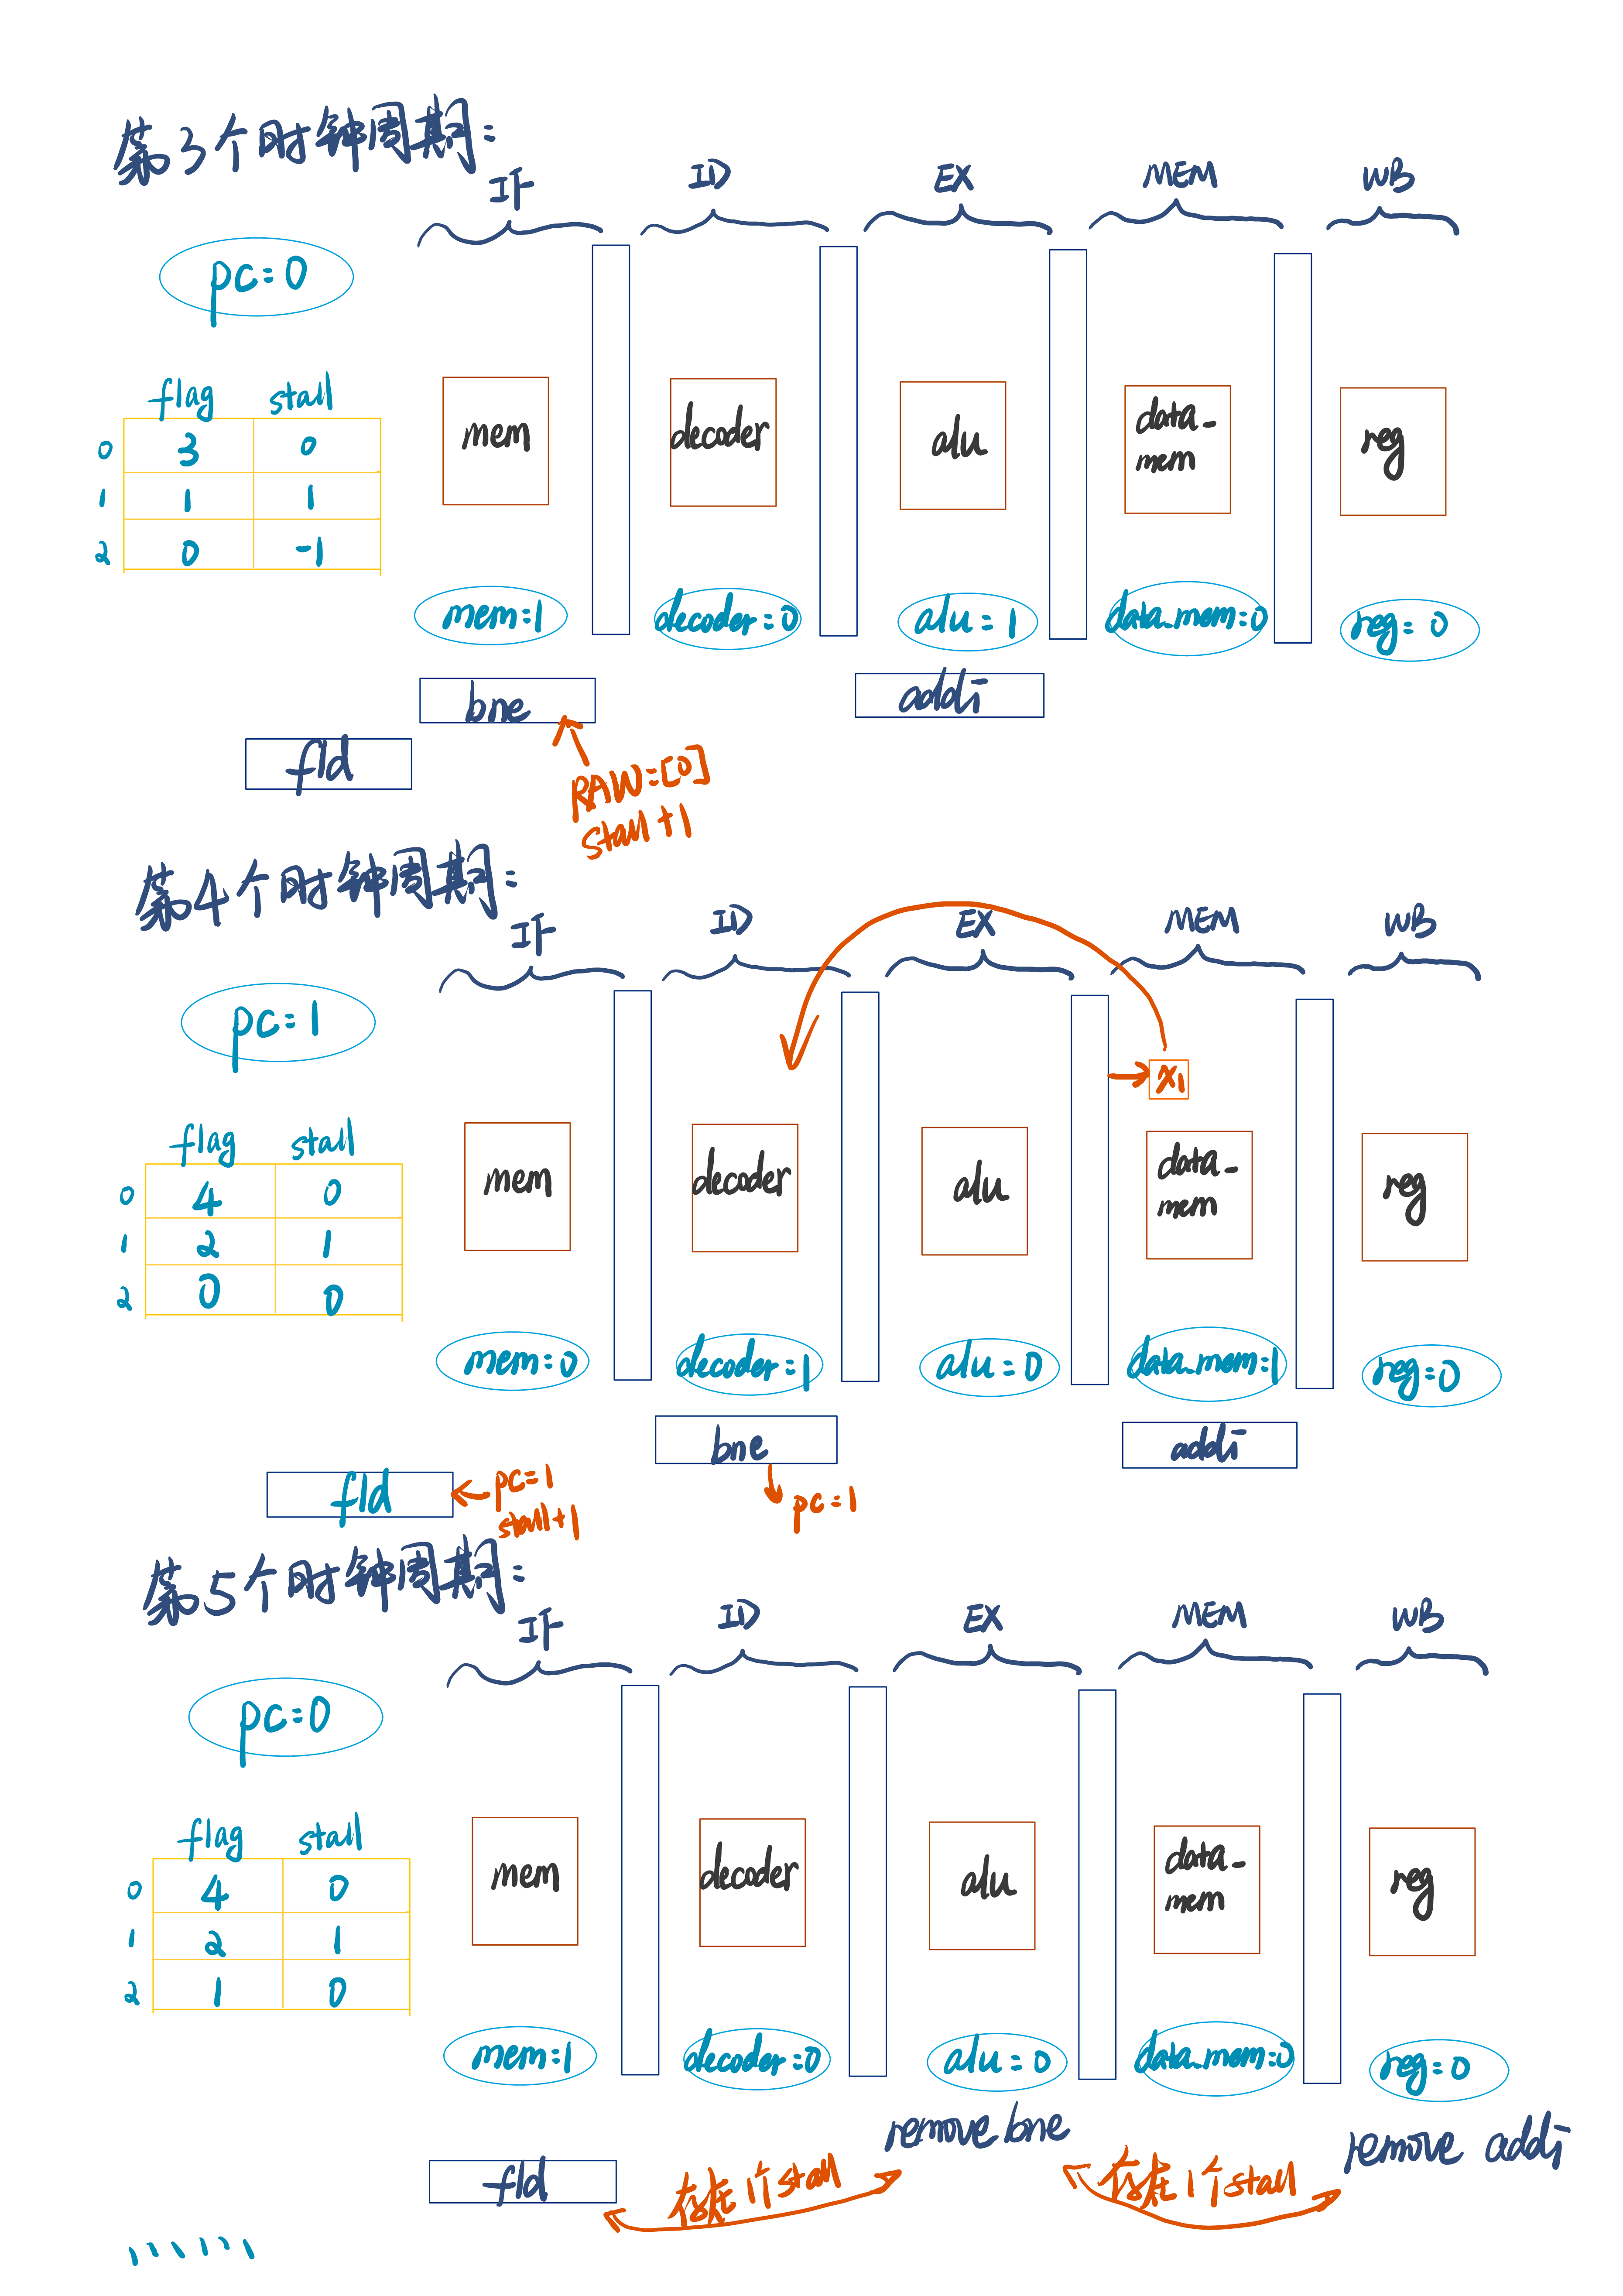 第3个时钟周期:
IF ID EX MEM WB
pc=0
flag stall
0 3 0
1 1 1
2 0 -1
mem decoder alu data_mem reg
mem=1 decoder=0 alu=1 data_mem=0 reg=0
bne addi
fld
RAW=[0]
stall+1
第4个时钟周期:
IF ID EX MEM WB
pc=1
x1
flag stall
0 4 0
1 2 1
2 0 0
mem decoder alu data_mem reg
mem=0 decoder=1 alu=0 data_mem=1 reg=0
bne addi
fld
pc=1
stall+1
pc=1
第5个时钟周期:
IF ID EX MEM WB
pc=0
flag stall
0 4 0
1 2 1
2 1 0
mem decoder alu data_mem reg
mem=1 decoder=0 alu=0 data_mem=0 reg=0
remove bne remove addi
fld
存在1个stall 存在1个stall